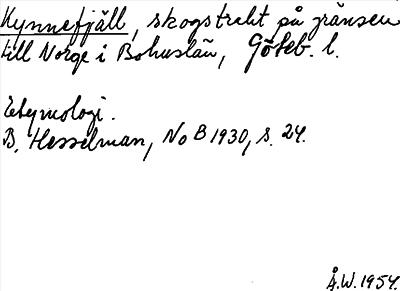 Kynnefjäll, skogstrakt på gränsen
till Norge i Bohuslän, Göteb. l.
Etymologi.
B. Hesselman, NoB 1930, s. 24.
Å.W. 1954.